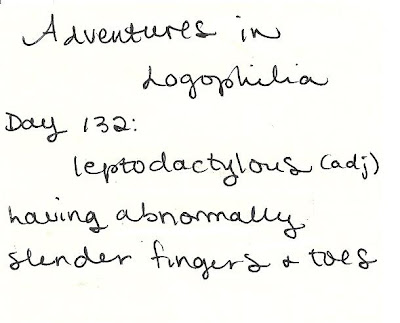 Adventures in
Logophilia
Day 132:
leptodactylous (adj)
having abnormally
slender fingers & toes